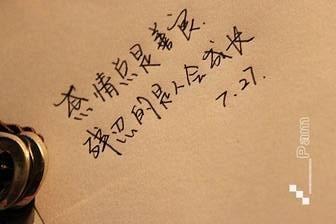 情点是善良.
的是人会成长
7.27.
Pam